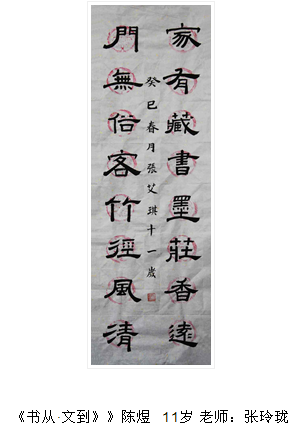 家有藏書墨莊香遠
門無俗客竹徑風清
癸巳春月張艾琪十一歲
《书从·文到》》陈煜   11岁 老师：张玲珑